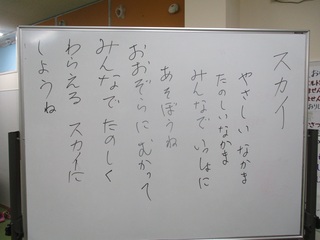 スカイ
やさしい なかま
たのしい なかま
みんなで いっしょに
あそぼうね
おおぞらに むかって
みんなで たのしく
わらえる スカイに
しようね